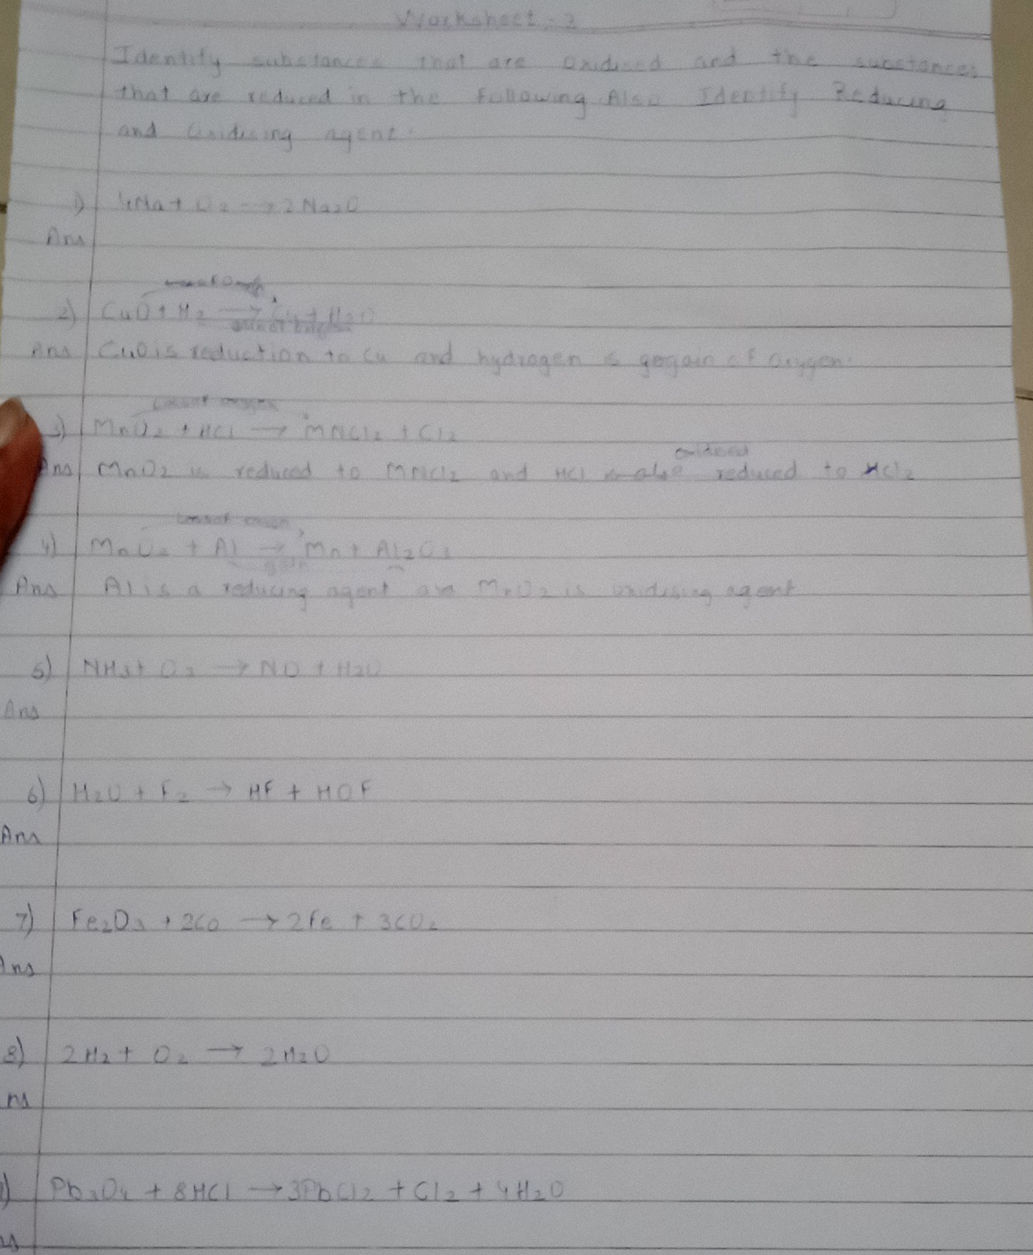 Worksheet - 2
Identify substances that are Oxidised and the substances
that are reduced in the following Also Identify Reducing
and Oxidising agent.
1) 4Na + O2 → 2Na2O
Ans
2) CuO + H2 → Cu + H2O
Ans CuO is reduction to Cu and hydrogen is gogain of oxygen.
3) MnO2 + HCl → MNCl2 + Cl2
oxidised
Ans MnO2 is reduced to MNCl2 and HCl is also reduced to HCl2
4) MnO2 + Al → Mn + Al2O3
gain
Ans Al is a reducing agent MnO2 is oxidising agent
5) NH3 + O2 → NO + H2O
Ans
6) H2O + F2 → HF + HOF
Ans
7) Fe2O3 + 3CO → 2Fe + 3CO2
Ans
8) 2H2 + O2 → 2H2O
ns
) Pb3O4 + 8HCl → 3PbCl2 + Cl2 + 4H2O